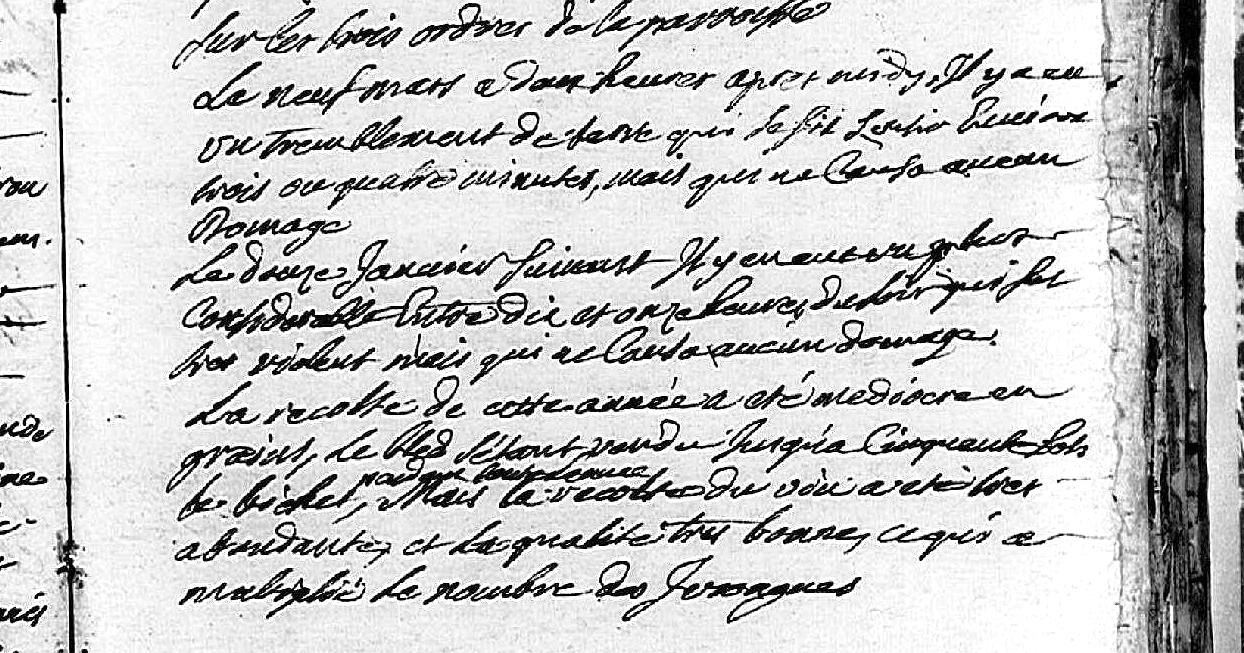 sur les trois ordres de la parroisse
Le neuf mars a deux heures apres midy, Il y a eu
un tremblement de terre qui se fit sentir Environ
trois ou quattre minutes, mais qui ne Causa aucun
Domage
Le douze Janvier suivant Il y en eut un plus
Considerable Entre dix et onze heures du soir qui fut
tres violent mais qui ne Causa aucun domage.
La recolte de cette année a eté mediocre en
grains, le bled s'étant vendu Jusqu'a Cinquante sols
le bichet, pendant toute l'année
Mais la recolte du vin a eté tres
abondante, et la qualité tres bonne, ce qui a
multiplié le nombre des Ivrognes